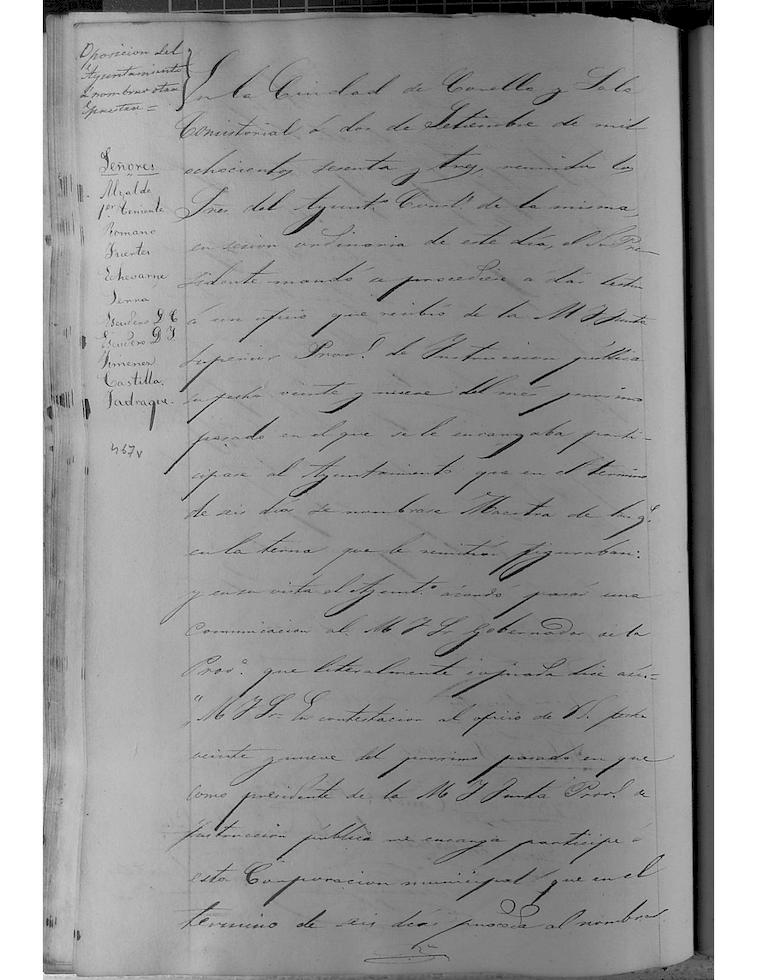 Oposicion del
Ayuntamiento
á nombrar otra
Maestra =
Señores
Alcalde
1er Teniente
Romano
Fuertes
Echevarne
Serna
Escudero D. C
Escudero D J
Jimenez
Castilla
Jadraque.
467v
En la Ciudad de Corella y Sala
Consistorial á dos de Setiembre de mil
ochocientos sesenta y tres, reunidos los
Sres del Ayuntº Constl de la misma,
en sesion ordinaria de este dia, el Sr Pre-
sidente mandó se procediese a dar lectura
á un oficio que recibió de la M I Junta
superior Provl de Instruccion pública
su fecha veinte y nueve del mes proximo
pasado en el que se le encargaba parti-
cipase al Ayuntamiento que en el termino
de seis dias se nombrase Maestra de las qe
en la terna que le remitió figuraban:
y en su vista el Ayuntº acordó pasar una
comunicacion al M I Sr Gobernador de la
Provª que literalmente copiada dice asi=
"M I Sr En contestacion al oficio de V.S. fecha
veinte y nueve del proximo pasado en que
como presidente de la M I Junta Provl de
Instruccion pública me encarga participe á
esta Corporacion municipal que en el
termino de seis dias proceda al nombra-